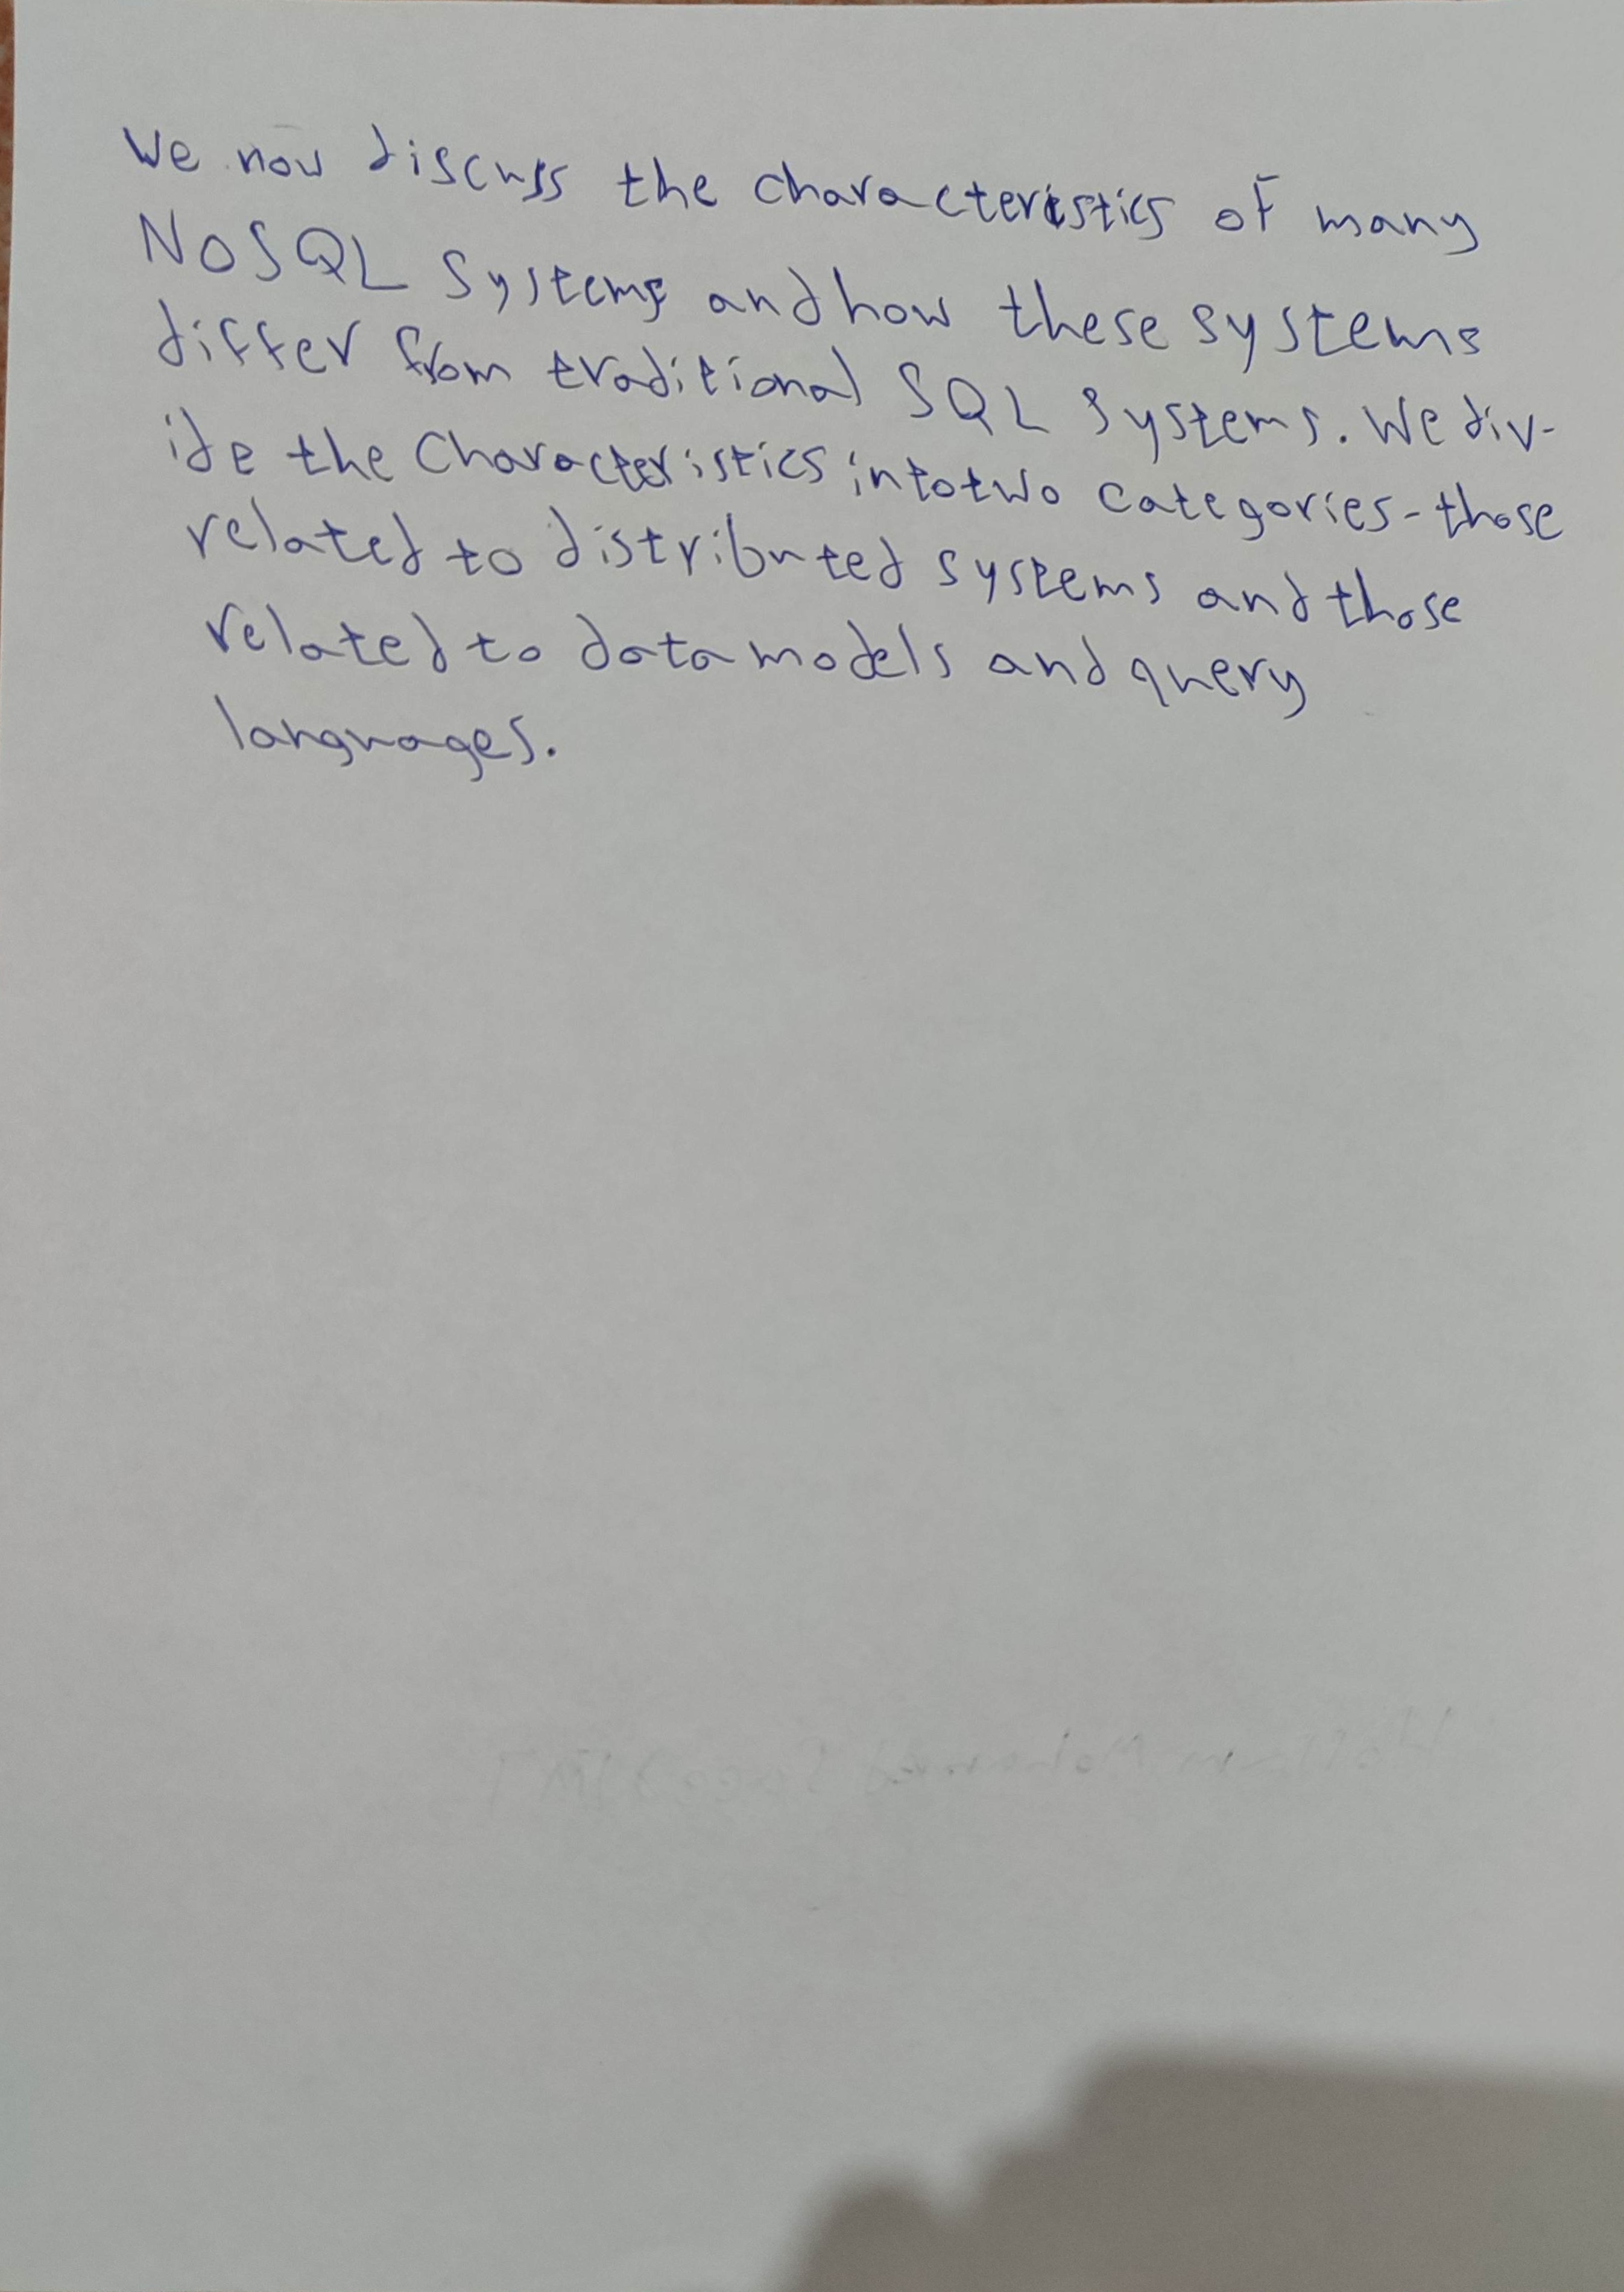 We now discuss the characteristics of many
NOSQL Systems and how these systems
differ from traditional SQL Systems. We div-
ide the Characteristics into two categories - those
related to distributed systems and those
related to data models and query
languages.